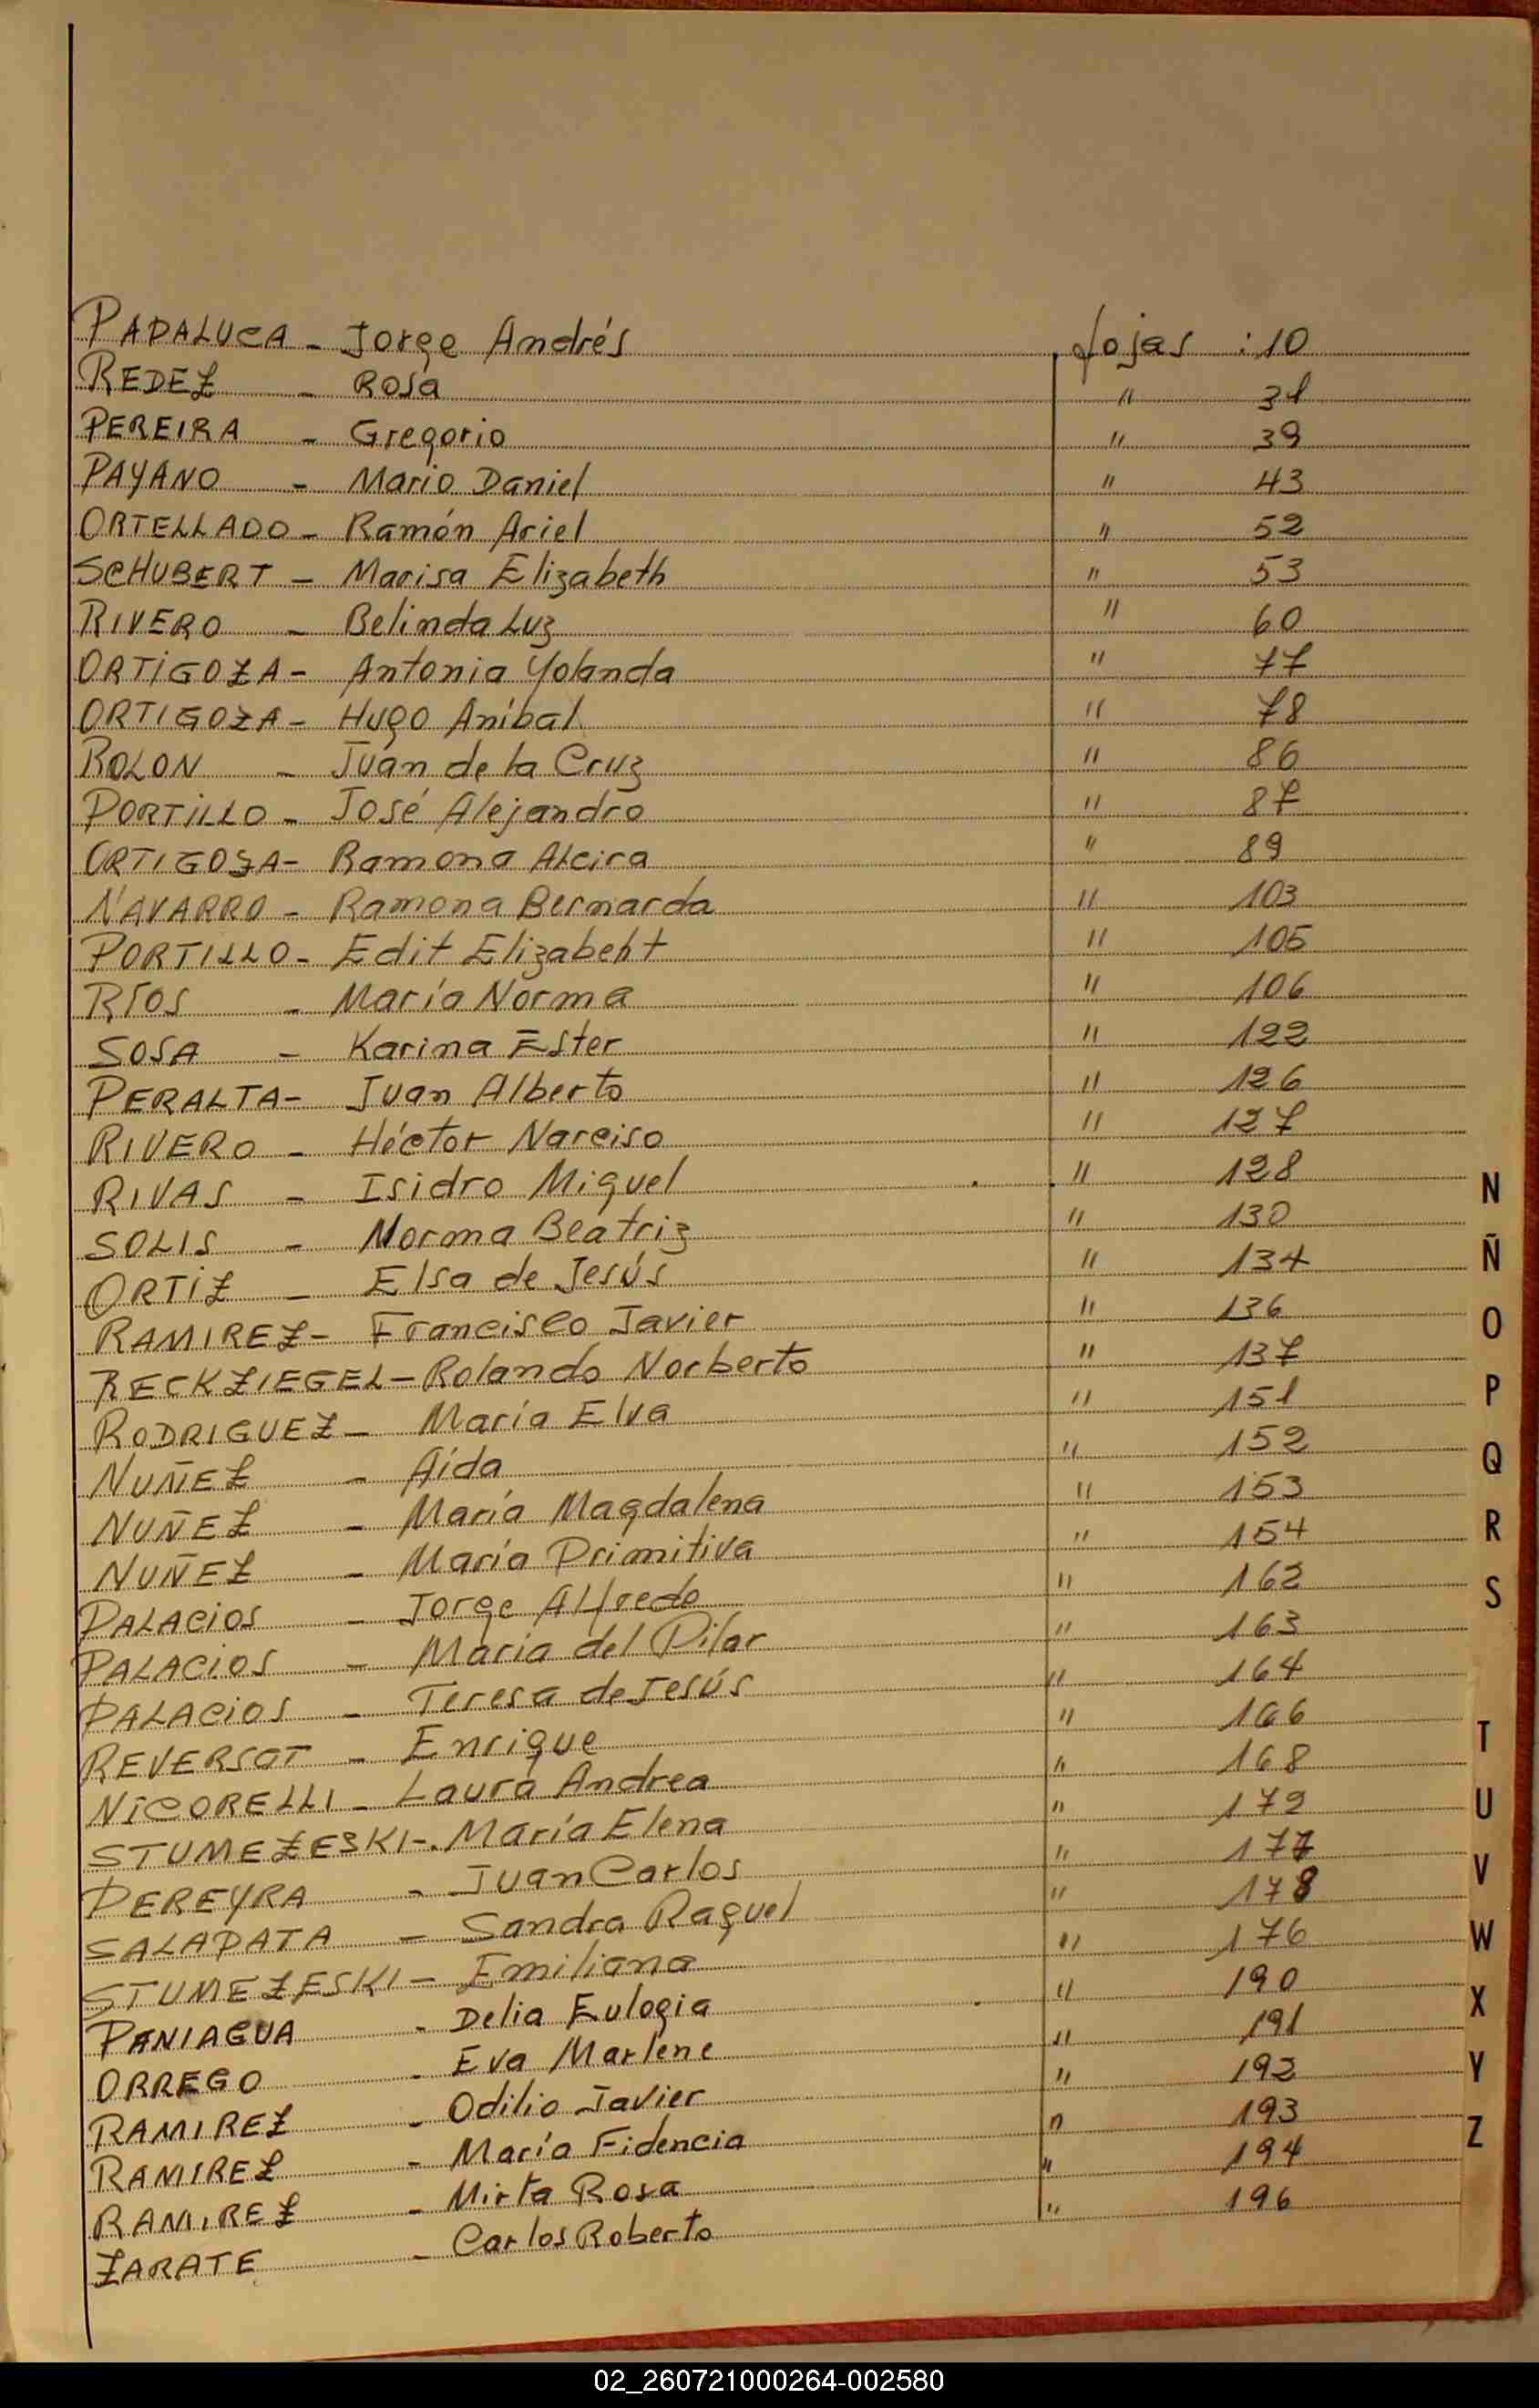 PAPALUCA - Jorge Andrés fojas : 10
REDEZ - Rosa " 31
PEREIRA - Gregorio " 39
PAYANO - Mario Daniel " 43
ORTELLADO - Ramón Ariel " 52
SCHUBERT - Marisa Elizabeth " 53
RIVERO - Belinda Luz " 60
ORTIGOZA - Antonia Yolanda " 77
ORTIGOZA - Hugo Aníbal " 78
ROLON - Juan de la Cruz " 86
PORTILLO - José Alejandro " 87
ORTIGOZA - Ramona Alcira " 89
NAVARRO - Ramona Bernarda " 103
PORTILLO - Edit Elizabeht " 105
RÍOS - María Norma " 106
SOSA - Karina Ester " 122
PERALTA - Juan Alberto " 126
RIVERO - Héctor Narciso " 127
RIVAS - Isidro Miguel " 128
SOLIS - Norma Beatriz " 130
ORTIZ - Elsa de Jesús " 134
RAMIREZ - Francisco Javier " 136
RECKZIEGEL - Rolando Norberto " 137
RODRIGUEZ - María Elva " 151
NUÑEZ - Aída " 152
NUÑEZ - María Magdalena " 153
NUÑEZ - María Primitiva " 154
PALACIOS - Jorge Alfredo " 162
PALACIOS - María del Pilar " 163
PALACIOS - Teresa de Jesús " 164
REVERSAT - Enrique " 166
NICORELLI - Laura Andrea " 168
STUMEZESKI - María Elena " 172
PEREYRA - Juan Carlos " 177
SALAPATA - Sandra Raquel " 178
STUMEZESKI - Emiliana " 176
PANIAGUA - Delia Eulogia " 190
ORREGO - Eva Marlene " 191
RAMIREZ - Odilio Javier " 192
RAMIREZ - María Fidencia " 193
RAMIREZ - Mirta Rosa " 194
ZARATE - Carlos Roberto " 196
N
Ñ
O
P
Q
R
S
T
U
V
W
X
Y
Z
02_260721000264-002580